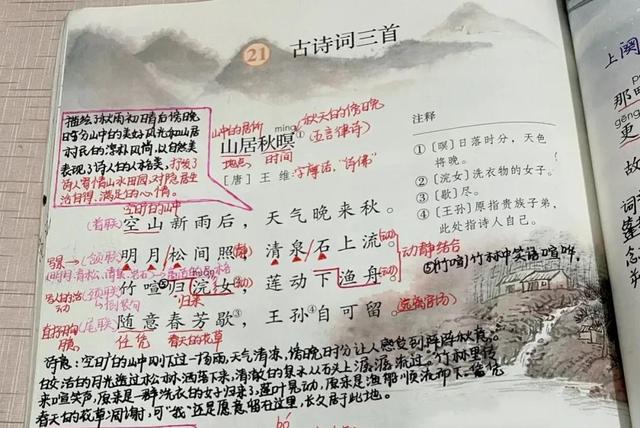 21 古诗词三首
描绘了秋雨初晴后傍晚
时分山中的美好风光和山居
村民的淳朴风尚,以自然美
表现了诗人的人格美,抒发了
诗人寄情山水田园,对隐居生
活自得、满足的心情。
山中的居所
秋天的傍晚
míng
山居秋暝①
五言律诗
地点 时间
[唐] 王 维
字摩诘,"诗佛"
注释
① [暝] 日落时分,天色
将晚。
② [浣女] 洗衣物的女子。
③ [歇] 尽。
④ [王孙] 原指贵族子弟,
此处指诗人自己。
⑤[竹喧]竹林中笑语喧哗。
空旷的山中
(首联) 空山新雨后,天气晚来秋。
(颔联) 明月/松间照(静) 清泉/石上流。(动)
动静结合
(颈联) 竹喧⑤归浣女②,莲动下渔舟。
倒装句 归来
(尾联) 随意春芳歇③,王孙④自可留。
任凭 春天的花草
远离官场
诗意:空旷的山中刚下过一场雨,天气清凉,傍晚时分让人感受到阵阵秋意。
皎洁的月光透过松林洒落下来,清澈的泉水从石上潺潺流过。竹林里传
来喧笑声,原来是一群洗衣的女子归来了,莲叶晃动,原来是渔船顺流而下。任凭
春天的花草凋谢,可"我"还是愿意留在这里,长久居于此地。
上阕
那
gěng
更
故
词
bó